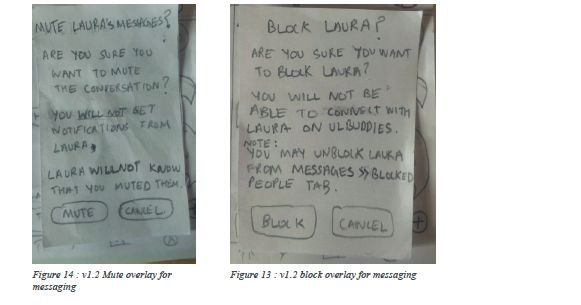 MUTE LAURA'S MESSAGES?
ARE YOU SURE YOU
WANT TO MUTE
THE CONVERSATION?
YOU WILL NOT GET
NOTIFICATIONS FROM
LAURA,
LAURA WILL NOT KNOW
THAT YOU MUTED THEM.
MUTE
CANCEL
Figure 14 : v1.2 Mute overlay for
messaging
BLOCK LAURA?
ARE YOU SURE YOU WANT
TO BLOCK LAURA?
YOU WILL NOT BE
ABLE TO CONNECT WITH
LAURA ON ULBUDDIES.
NOTE:
YOU MAY UNBLOCK LAURA
FROM MESSAGES >> BLOCKED
PEOPLE TAB.
BLOCK
CANCEL
Figure 13 : v1.2 block overlay for messaging